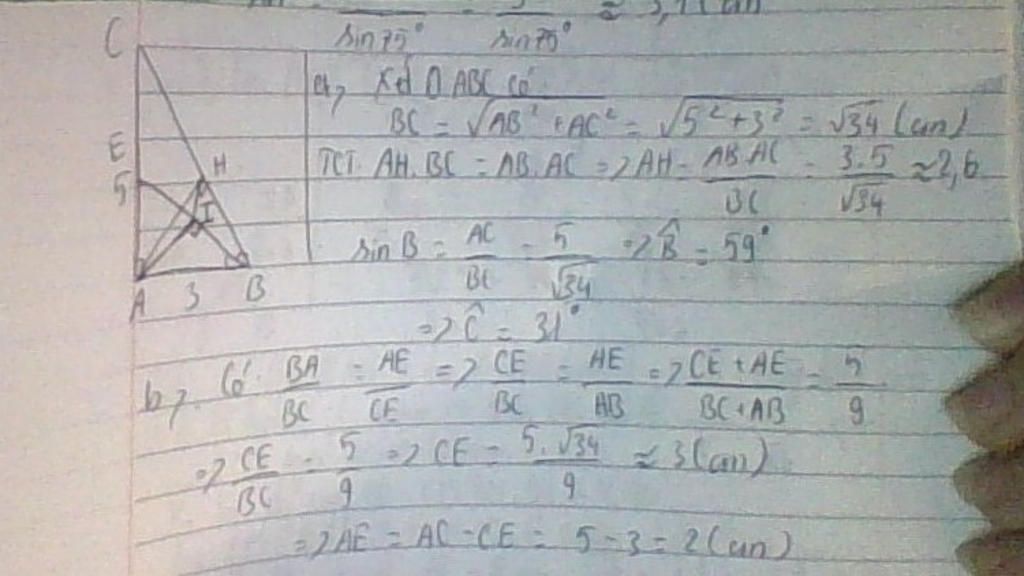 sin75° sin75° ≈ 3,1 (cm)
C
E
5
H
I
A 3 B
a, Xét Δ ABC có
BC = √AB² + AC² = √5² + 3² = √34 (cm)
TCT: AH.BC = AB.AC => AH = AB.AC/BC = 3.5/√34 ≈ 2,6
sin B = AC/BC = 5/√34 => B̂ = 59°
=> Ĉ = 31°
b, Có: BA/BC = AE/CE => CE/BC = AE/AB => CE + AE/BC + AB = 5/9
=> CE/BC = 5/9 => CE = 5.√34/9 ≈ 3 (cm)
=> AE = AC - CE = 5 - 3 = 2 (cm)